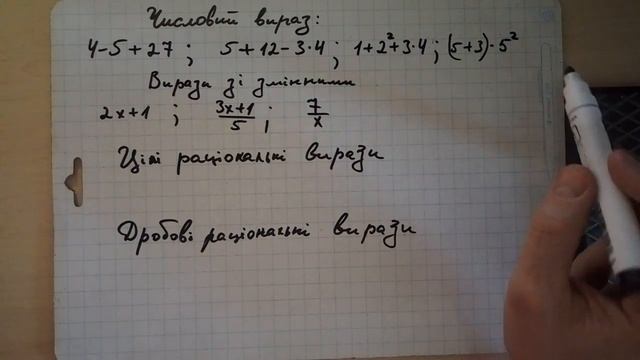 Числовий вираз:
4-5+27 ; 5+12-3·4 ; 1+2²+3·4 ; (5+3)·5²
Вирази зі змінними
2x+1 ; (3x+1)/5 ; 7/x
Цілі раціональні вирази
Дробові раціональні вирази